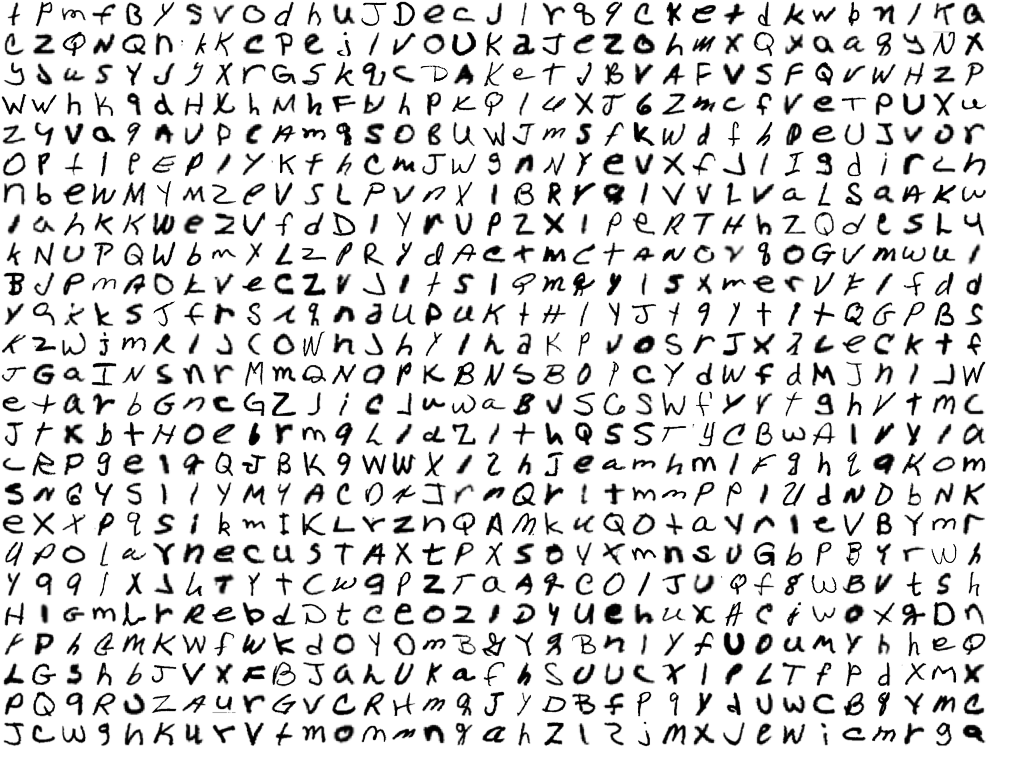 t P m f B Y S V O d h U J D e c J l r 8 9 C K e t d k w b n l K a
C Z Q N Q n k K C P e j l V O U K a J e Z O h m X Q X a a 8 Y N X
Y J u S Y J Y X r G S k q C D A K e T J B V A F V S F Q V W H Z P
W W h k 9 d H X h M h F b h P K P l u X J 6 Z m c f v e T P U X u
Z Y V a 9 A U P C A m 9 S O B U W J m S f K W d f h P e U J V O r
O P t l P E P l Y K t h C m J W 9 n N Y e V X f J l I 9 d i r c h
n b e W M Y M Z e V S L P V n X l B R r a l V V L V a L S a A K w
l a h K K W e 2 V f d D l Y r U P Z X l P e R T H h Z Q d e S L Y
k N U P Q W b m X L Z P R Y d A C t m C t A N O V 9 O G V m w u l
B J P m A O L V e C Z V J l t S l Q m q Y l S X m e r V F l f d d
Y 9 k k S J f r S i 9 n a U P u K t H l Y J t 9 Y t l t Q G P B S
K Z W j m R l J C O W n J h Y l h a K P V O S r J X 2 L e C k t f
J G a I N S n r M m Q N O P K B N S B O P C Y d W f d M J n l J W
e t a r b G n c G Z J i C J u w a B V S G S W f Y r t 9 h V t m C
J t X b t H O e b r m 9 L l d Z l t h Q S S T Y C B w A l r Y l a
C R P 9 e l 9 Q J B K 9 W W X l 2 h J e a m h m l F 9 h 2 9 K O m
S N G Y S l l Y M Y A C D t J r n Q r l t m m P P l U d N D b N K
e X X P 9 S i k m I K L r Z n Q A M k u Q O t a Y r l e V B Y m r
q P O l a Y n e c u S T A X t P X S O Y X m n S U G b P B Y r W h
Y 9 9 l X J h T Y t C w 9 P Z T a A 9 C O l J U Q f 8 W B V t S h
H l G m L r R e b d D t C e O Z l D Y U e h u X A C j w O X 9 D n
F P h Q M K W f W k d O Y O m B 8 Y 9 B n l Y f U O u m Y h h e Q
L G S h b J V X F B J a h U K a f h S U U C X l P L T f P d X M X
P Q 9 R U Z A u r G V C R H m 9 J Y D B f P 9 Y d U W C B 9 Y m C
J C W 9 h K u r V t m O m m n 9 a h Z l 2 j m X J e w i c m r 9 a